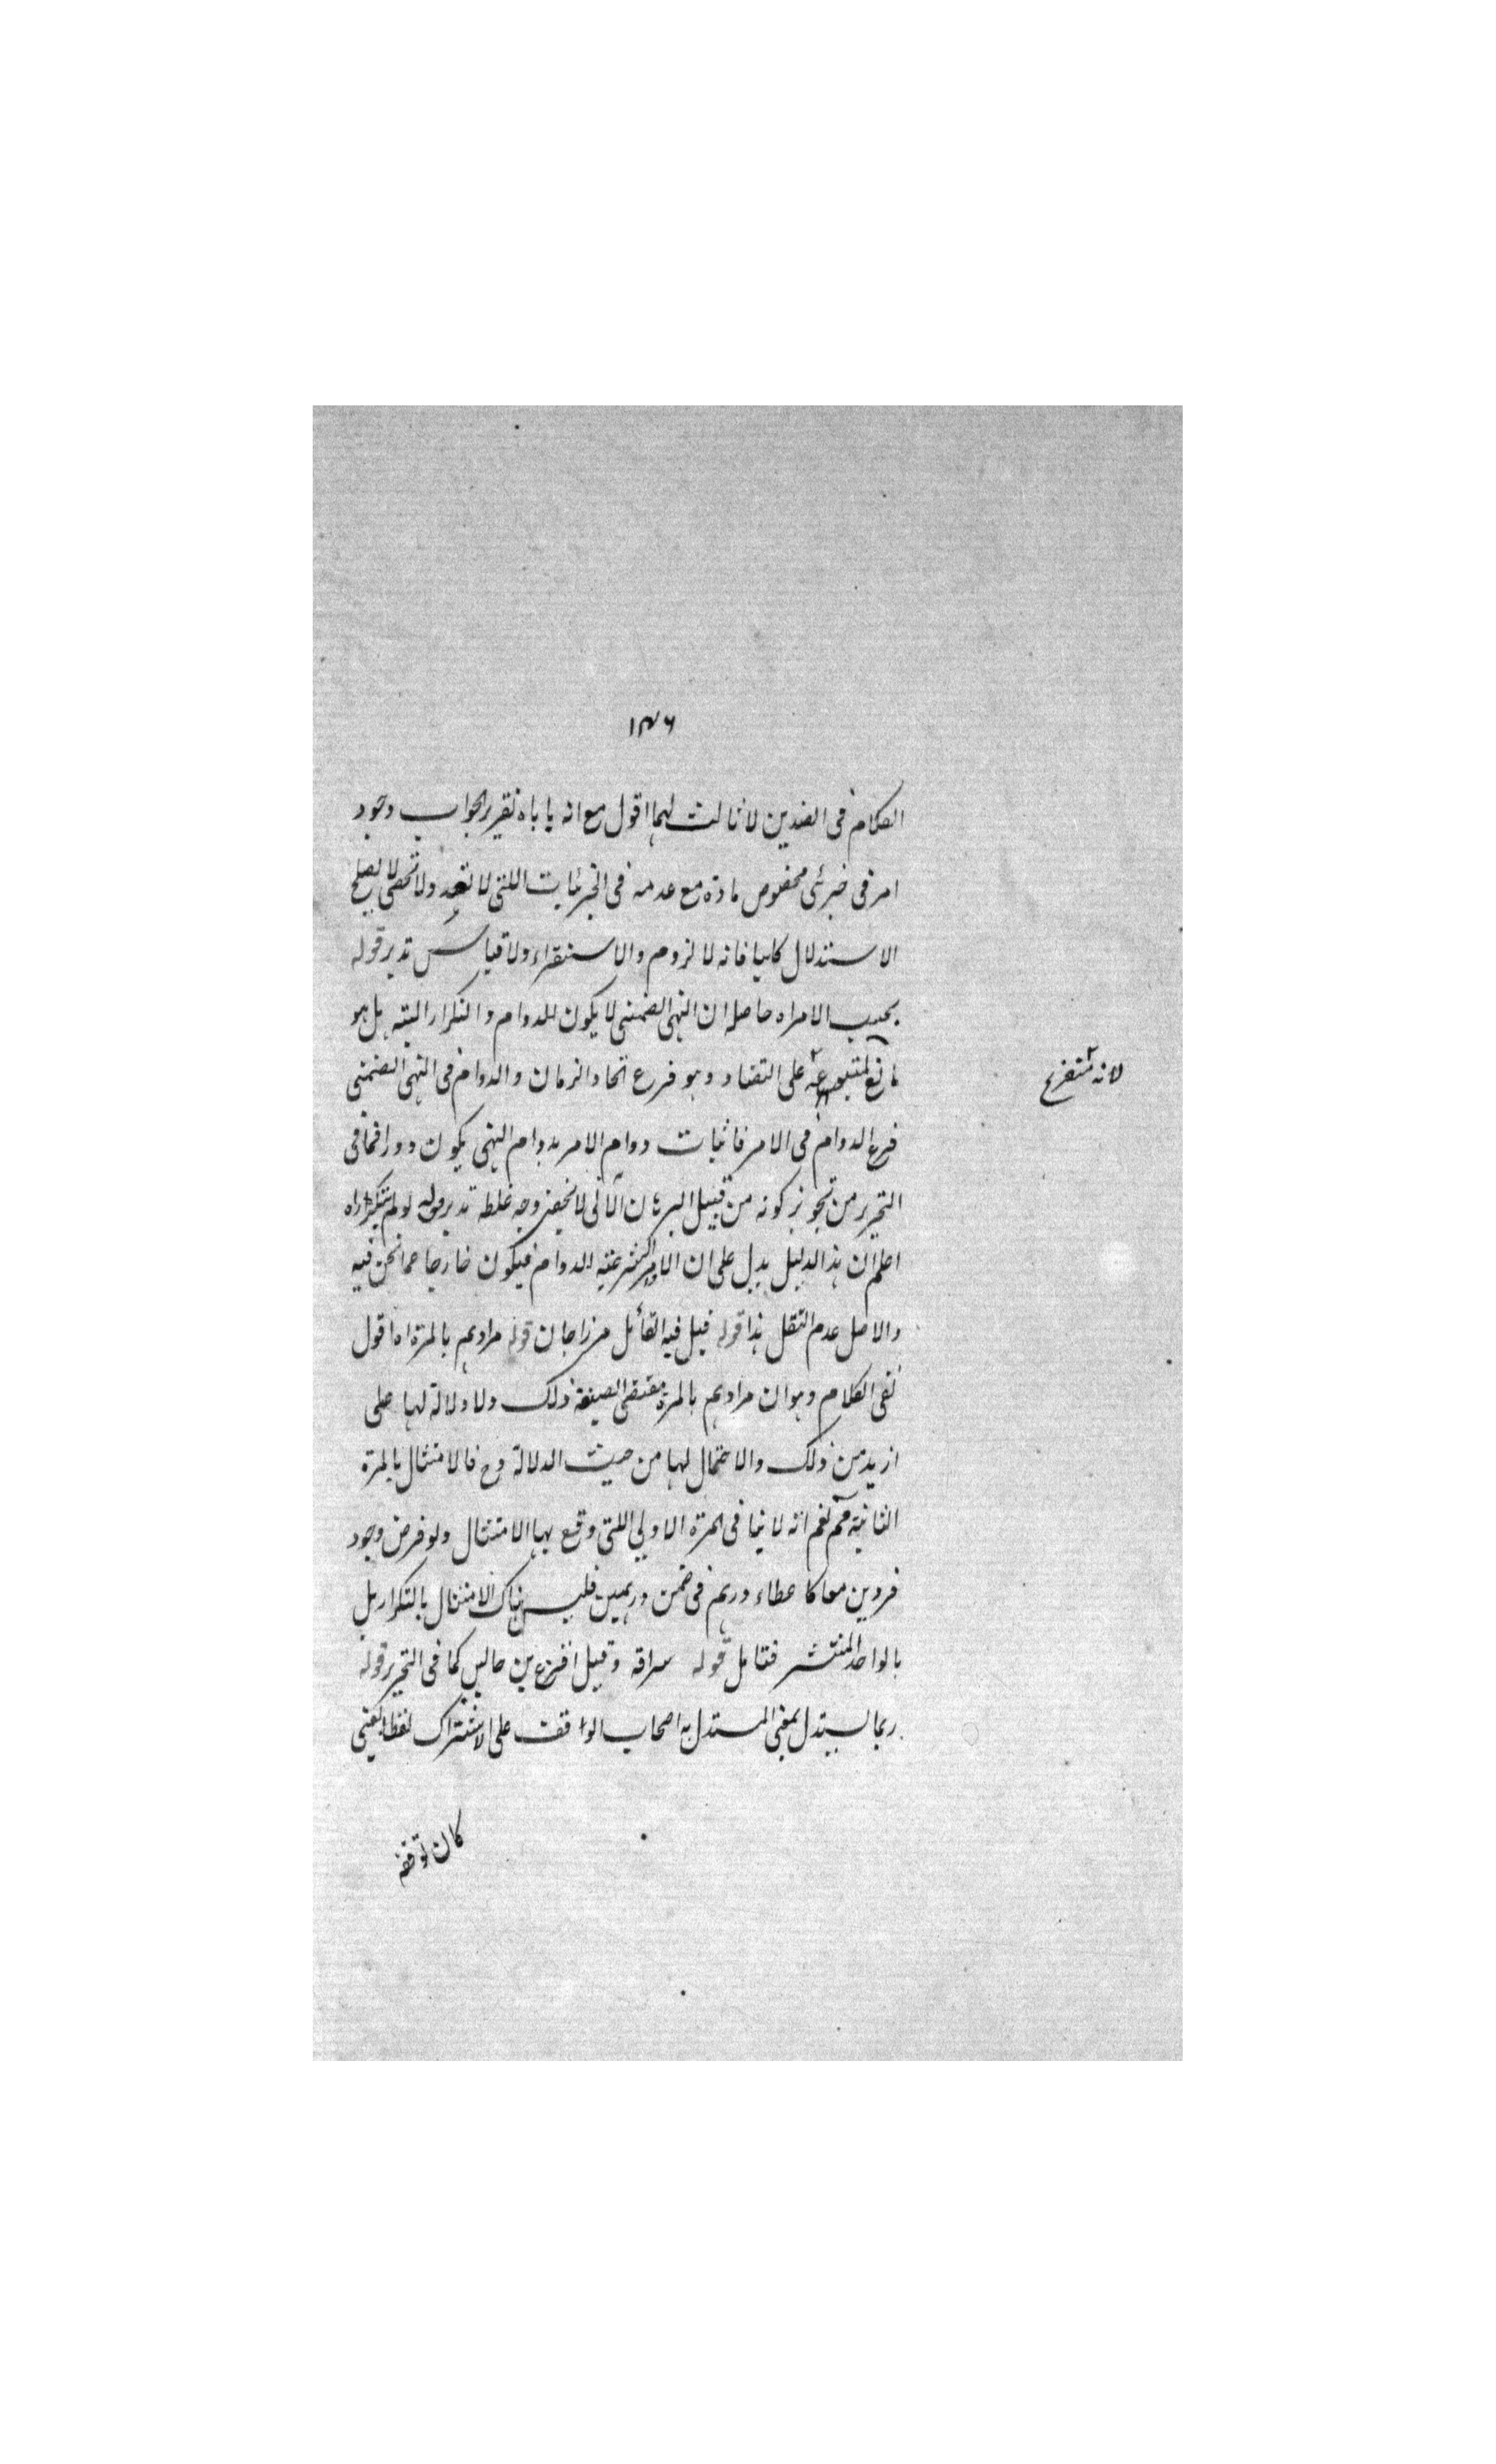 ١٣٦
الكلام فى الضدين لا ثالث لهما اقول مع انه ياباه تقرير الجواب وجود
امر فى جزئى مخصوص مادة مع عدمه فى الجزئيات اللتى لا تعد ولا تحصى لا يصلح
الاستدلال كليا فانه لا لزوم والاستقراء ولا قياس تدبر قوله
بحسب الامر اه حاصله ان النهى الضمنى لا يكون للدوام والتكرار البتة بل هو
على التضاد وهو فرع اتحاد الزمان والدوام فى النهى الضمنى
لانه متفرع
فرع الدوام فى الامر فاثبات دوام الامر بدوام النهى يكون دورا فما فى
التحرير من تجويز كونه من قبيل البرهان الانى لا يخفى وجه غلطه تدبر قوله لو لم يتكرر اه
اعلم ان هذا الدليل يدل على ان الاوامر الشرعية للدوام فيكون خارجا عما نحن فيه
والاصل عدم النقل هذا قوله قيل فيه القائل مرزاجان قوله مرادهم بالمرة اه اقول
نفى الكلام وهو ان مرادهم بالمرة مقتضى الصيغة ذلك ولا دلالة لها على
ازيد من ذلك والاحتمال لها من حيث الدلالة وح فالامتثال بالمرة
الثانية مم نعم انه لا ينافى المرة الاولى اللتى وقع بها الامتثال ولو فرض وجود
فردين معا كاعطاء درهم فى ضمن درهمين فليس هناك الامتثال بالتكرار بل
بالواحد المنتشر فتامل قوله سراقه وقيل اقرع بن حابس كما فى التحرير قوله
ربما يستدل يعنى المستدل به اصحاب الواقف على الاشتراك لفظا يعنى
كان توقفه